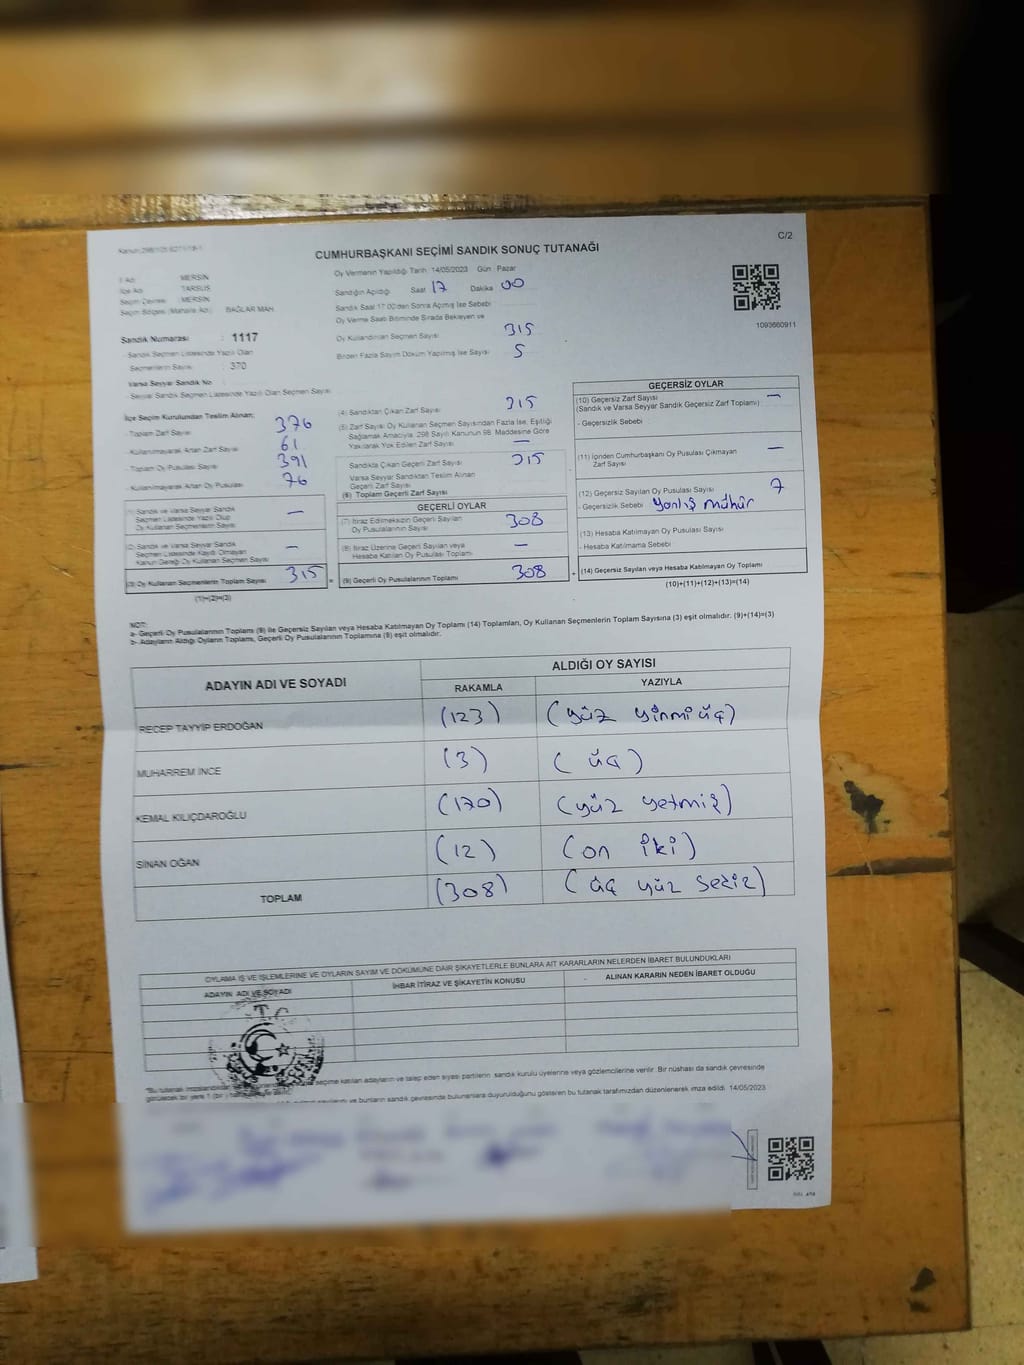 C/2
CUMHURBAŞKANI SEÇİMİ SANDIK SONUÇ TUTANAĞI
İl Adı : MERSİN
İlçe Adı : TARSUS
Seçim Çevresi : MERSİN
Seçim Bölgesi (Mahalle Adı) : BAĞLAR MAH.
Oy Vermenin Yapıldığı Tarih :14/05/2023 Gün :Pazar
Sandığın Açıldığı Saat 17 Dakika 00
Sandık Saat 17:00'den Sonra Açılmış İse Sebebi
Oy Verme Saati Bitiminde Sırada Bekleyen ve
Oy Kullandırılan Seçmen Sayısı 315
Birden Fazla Sayım Döküm Yapılmış İse Sayısı 5
1093660911
Sandık Numarası : 1117
- Sandık Seçmen Listesinde Yazılı Olan
Seçmenlerin Sayısı : 370
Varsa Seyyar Sandık No :
- Seyyar Sandık Seçmen Listesinde Yazılı Olan Seçmen Sayısı
İlçe Seçim Kurulundan Teslim Alınan;
- Toplam Zarf Sayısı 376
- Kullanılmayarak Artan Zarf Sayısı 61
- Toplam Oy Pusulası Sayısı 391
- Kullanılmayarak Artan Oy Pusulası 76
(1) Sandık ve Varsa Seyyar Sandık
Seçmen Listesinde Yazılı Olup
Oy Kullanan Seçmenlerin Sayısı —
(2) Sandık ve Varsa Seyyar Sandık
Seçmen Listesinde Kaydı Olmayan
Kanun Gereği Oy Kullanan Seçmen Sayısı —
(3) Oy Kullanan Seçmenlerin Toplam Sayısı 315 =
(1)+(2)=(3)
(4) Sandıktan Çıkan Zarf Sayısı 315
(5) Zarf Sayısı Oy Kullanan Seçmen Sayısından Fazla İse, Eşitliği
Sağlamak Amacıyla, 298 Sayılı Kanunun 98. Maddesine Göre
Yakılarak Yok Edilen Zarf Sayısı —
Sandıkta Çıkan Geçerli Zarf Sayısı 315
Varsa Seyyar Sandıktan Teslim Alınan
Geçerli Zarf Sayısı
(6) Toplam Geçerli Zarf Sayısı
GEÇERLİ OYLAR
(7) İtiraz Edilmeksizin Geçerli Sayılan
Oy Pusulalarının Sayısı 308
(8) İtiraz Üzerine Geçerli Sayılan veya
Hesaba Katılan Oy Pusulası Toplamı —
(9) Geçerli Oy Pusulalarının Toplamı 308 +
GEÇERSİZ OYLAR
(10) Geçersiz Zarf Sayısı —
(Sandık ve Varsa Seyyar Sandık Geçersiz Zarf Toplamı)
- Geçersizlik Sebebi
(11) İçinden Cumhurbaşkanı Oy Pusulası Çıkmayan
Zarf Sayısı —
(12) Geçersiz Sayılan Oy Pusulası Sayısı 7
- Geçersizlik Sebebi yanlış mühür
(13) Hesaba Katılmayan Oy Pusulası Sayısı
- Hesaba Katılmama Sebebi
(14) Geçersiz Sayılan veya Hesaba Katılmayan Oy Toplamı
(10)+(11)+(12)+(13)=(14)
NOT:
a- Geçerli Oy Pusulalarının Toplamı (9) ile Geçersiz Sayılan veya Hesaba Katılmayan Oy Toplamı (14) Toplamları, Oy Kullanan Seçmenlerin Toplam Sayısına (3) eşit olmalıdır. (9)+(14)=(3)
b- Adayların Aldığı Oyların Toplamı, Geçerli Oy Pusulalarının Toplamına (9) eşit olmalıdır.
ADAYIN ADI VE SOYADI
ALDIĞI OY SAYISI
RAKAMLA YAZIYLA
RECEP TAYYİP ERDOĞAN (123) (yüz yirmi üç)
MUHARREM İNCE (3) (üç)
KEMAL KILIÇDAROĞLU (170) (yüz yetmiş)
SİNAN OĞAN (12) (on iki)
TOPLAM (308) (üç yüz sekiz)
OYLAMA İŞ VE İŞLEMLERİNE VE OYLARIN SAYIM VE DÖKÜMÜNE DAİR ŞİKAYETLERLE BUNLARA AİT KARARLARIN NELERDEN İBARET BULUNDUKLARI
ADAYIN ADI VE SOYADI İHBAR İTİRAZ VE ŞİKAYETİN KONUSU ALINAN KARARIN NEDEN İBARET OLDUĞU
T.C.
seçime katılan adayların ve talep eden siyasi partilerin sandık kurulu üyelerine veya gözlemcilerine verilir. Bir nüshası da sandık çevresinde
görülecek bir yere 1 (bir)
ve bunların sandık çevresinde bulunanlara duyurulduğunu gösteren bu tutanak tarafımızdan düzenlenerek imza edildi. 14/05/2023